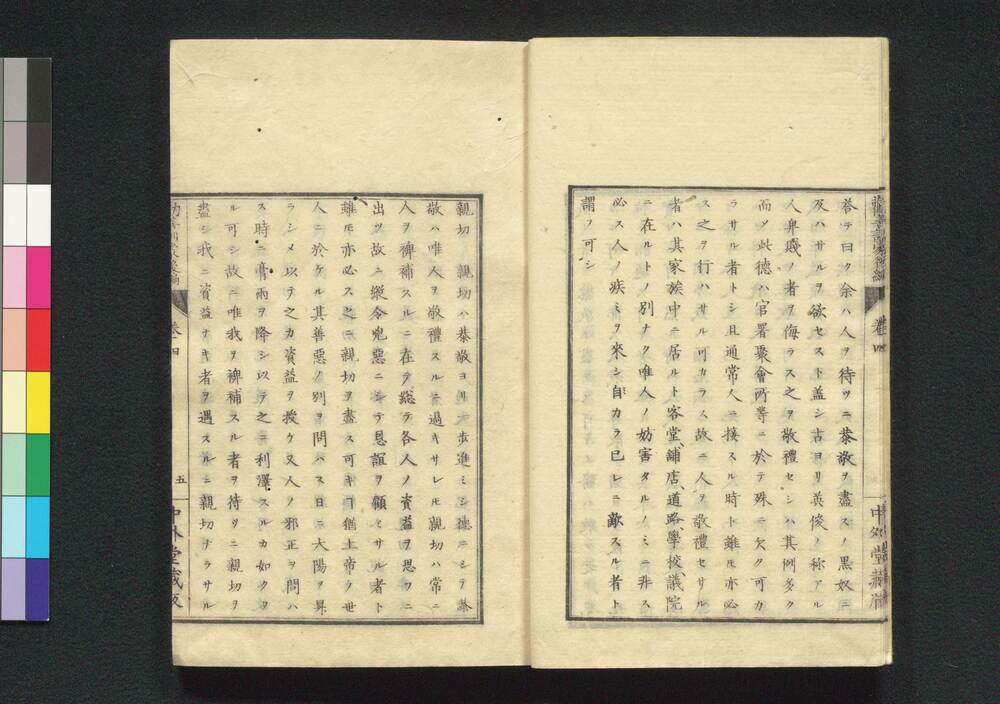 答テ曰ク余ハ人ヲ待ツニ恭敬ヲ盡スノ黑奴ニ
及ハサルヲ欲セスト蓋シ古ヨリ英俊ノ称アル
人卑賤ノ者ヲ侮ラス之ヲ敬禮セシハ其例多ク
而ソ此德ハ官署聚會所等ニ於テ殊ニ欠ク可カ
ラサル者トシ且通常人ニ接スル時ト雖ル亦必
ス之ヲ行ハサル可カラス故ニ人ヲ敬禮セサル
者ハ其家族中ニ居ルト客堂、鋪店、道路、學校議院
ニ在ルトノ別ナク唯人ノ妨害タルノミニ非ス
必ス人ノ疾ミヲ來シ自カラ已レニ敵スル者ト
謂ソ可シ
卷四
中外堂藏版
親切　親切ハ恭敬ヨリ一歩進ミシ德ニシテ恭
敬ハ唯人ヲ敬禮スルニ過キサレモ親切ハ常ニ
人ヲ裨補スルニ在テ総テ各人ノ資益ヲ思フニ
出ツ故ニ縱令兇惡ニシテ恩誼ヲ顧ミサル者ト
雖モ亦必ス之ニ親切ヲ盡ス可キヿ猶上帝ノ世
人ニ於ケル其善惡ノ別ヲ問ハス日ニ大陽ヲ昇
ラシメ以テ之カ資益ヲ授ケ又人ノ邪正ヲ問ハ
ス時ニ膏雨ヲ降シ以テ之ニ利澤スルカ如クタ
ル可シ故ニ唯我ヲ裨補スル者ヲ待タニ親切ヲ
盡シ我ニ資益ナキ者ヲ遇スルニ親切ナラサル
卷四
五
中外堂藏版